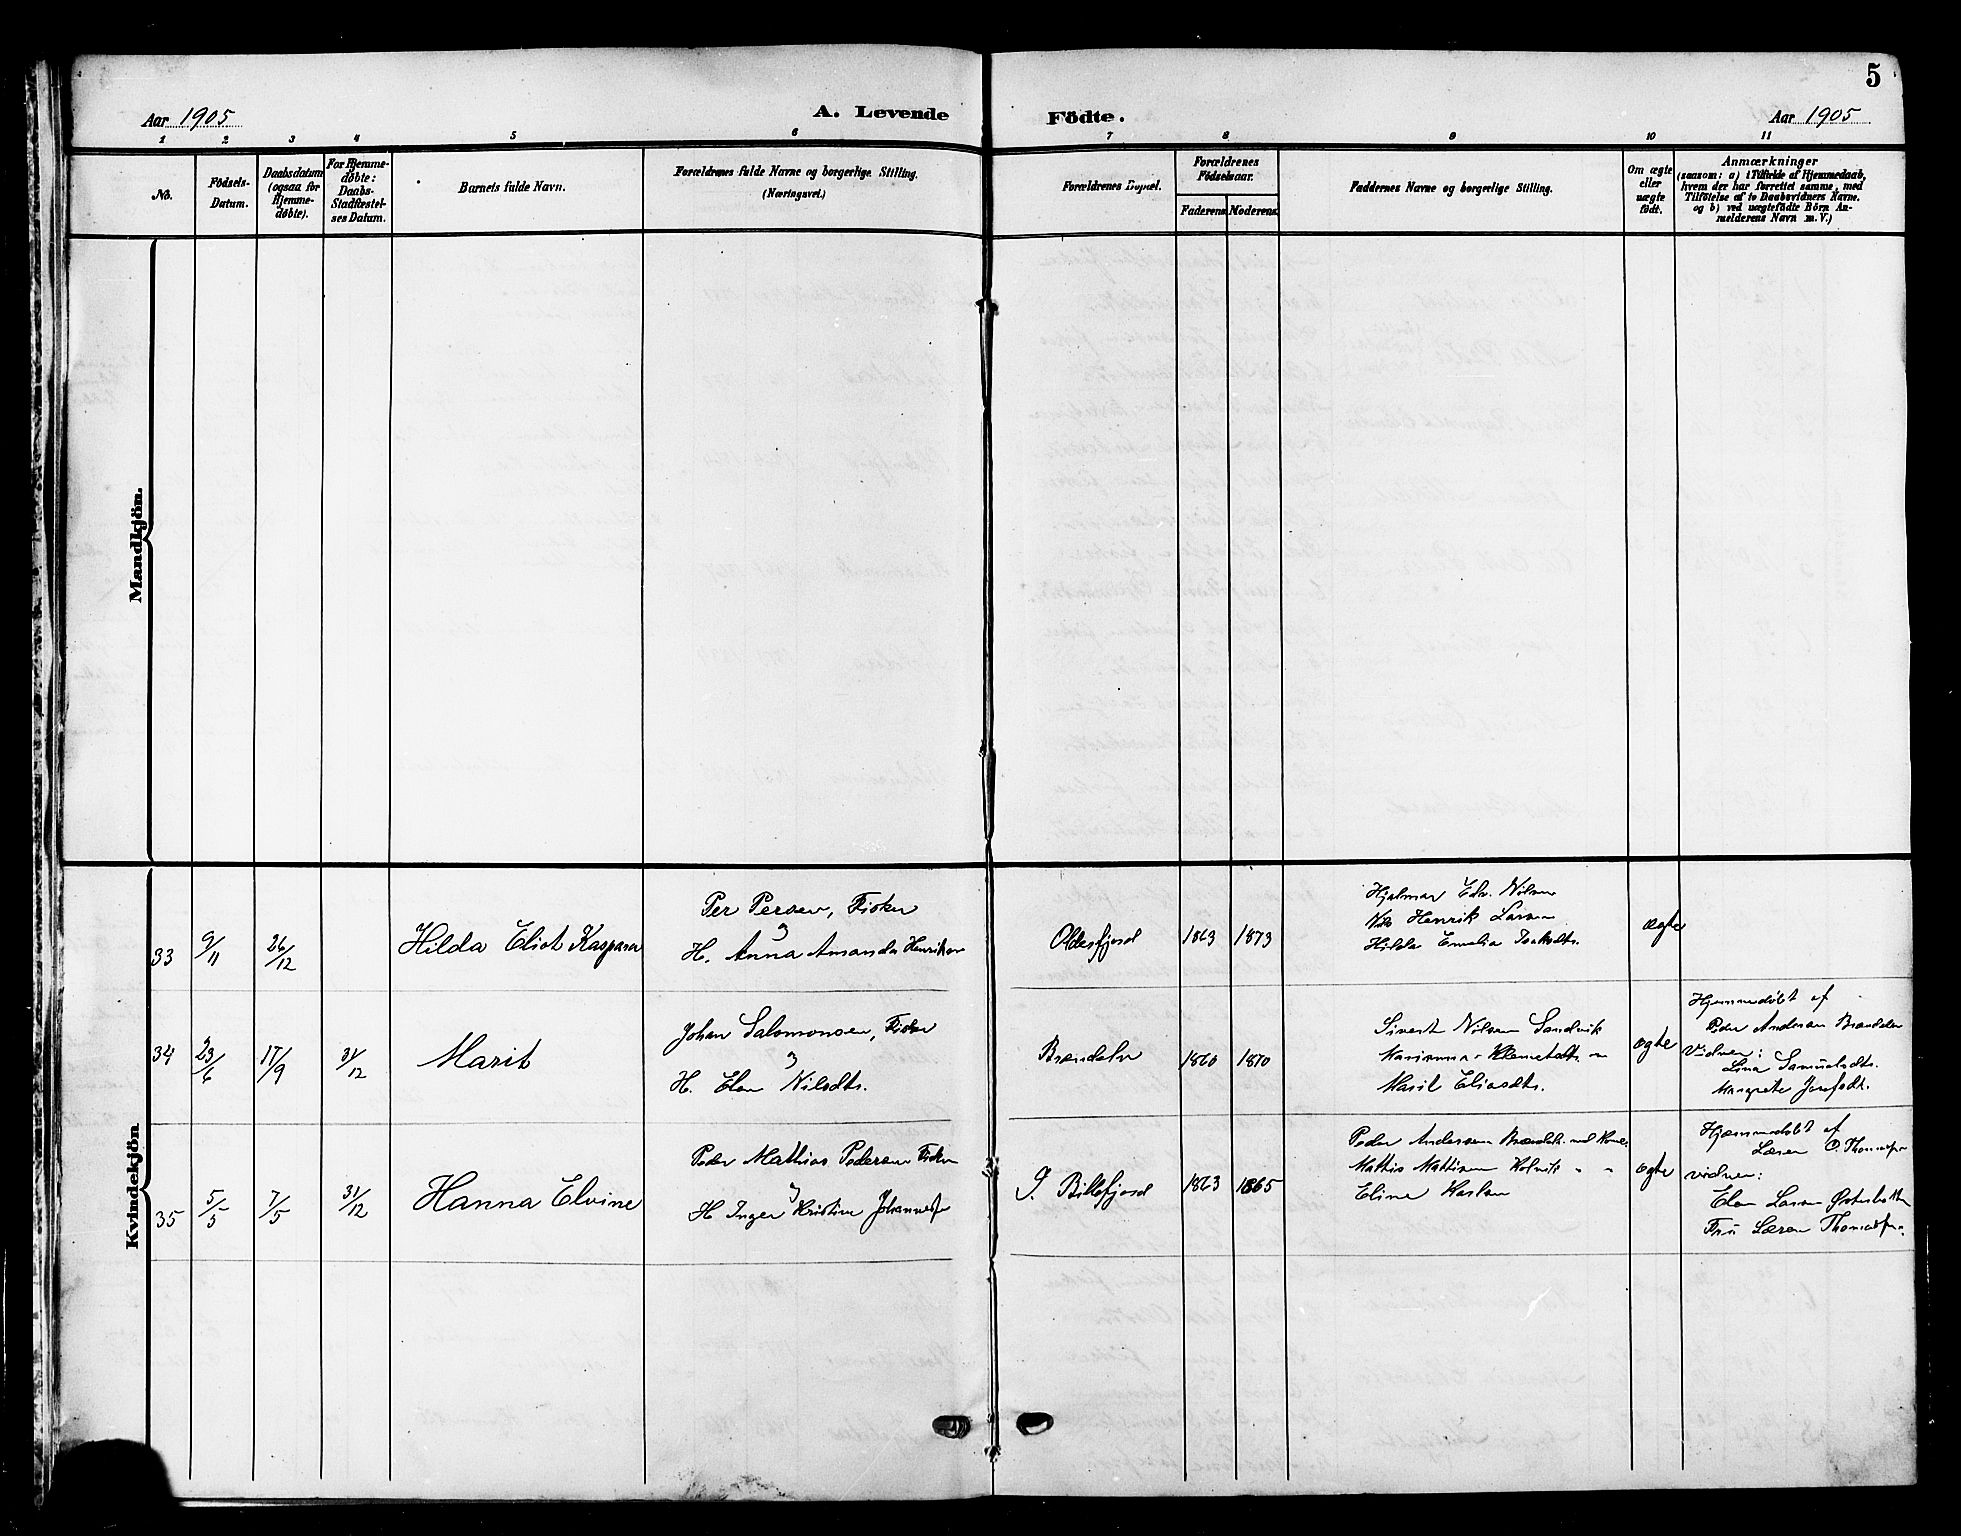 5
Aar 1905
A. Levende
Födte.
Aar 1905
1 2 3 4 5 6 7 8 9 10 11
No.
Födsels-
Datum.
Daabsdatum
(ogsaa for
Hjemme-
døbte).
For Hjemme-
døbte:
Daabs-
Stadfæstel-
ses Datum.
Barnets fulde Navn.
Forældrenes fulde Navne og borgerlige Stilling.
(Næringsvei.)
Forældrenes Bopæl.
Forældrenes
Födselsaar.
Faderens.
Moderens.
Faddernes Navne og borgerlige Stilling.
Om ægte
eller
uægte
født.
Anmærkninger
(saasom: a) i Tilfælde af Hjemmedaab,
hvem der har forrettet samme, med
Tilföielse af to Daabsvidners Navne.
og b) ved uægtefödte Börn An-
melderens Navn m. V.)
Mandkjön.
Kvindekjön
33 9/11 26/12 Hilda Eliot Kaspara
Per Persen, Fisker
H. Anna Amanda Henriksen
Oldesfjord 1863 1873
Hjalmar Edv. Nilsen
Henrik Larsen
Hilda Emelia Isaksdtr.
ægte
34 23/6 17/9 31/12 Marit
Johan Salomonsen, Fisker
H. Elen Nilsdtr.
Brændelv 1860 1870
Sivert Nilsen Sandvik
Marianna Klemetsdtr. "
Marit Eliasdtr.
ægte
Hjemmedøbt af
Peder Andersen Brændelv
Vidner:
Lina Samuelsdtr.
Margrete Josefsdt.
35 5/5 7/5 31/12 Hanna Elvine
Peder Mathias Pedersen Fisker
H Inger Kristine Johannesen
S. Billefjord 1863 1865
Peder Andersen Brændelv. med Kone
Mattis Mattisen Kolvik " "
Eline Karlsen
ægte
Hjemmedøbt af
Lærer O. Thomassen
vidner:
Elen Larsen Østerbotten
Fru Lærer Thomassen.